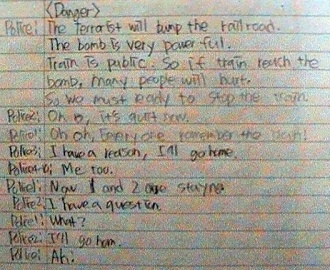 <Danger>
Police1: The Terrorist will bump the railroad.
The bomb is very powerful.
Train is public. So if train reach the
bomb, many people will hurt.
So we must ready to stop the train
Police2: Oh, it's quiet now.
Police1: Oh oh, Everyone remember the
Police3: I have a reason, I'll go home.
Police4-6: Me too.
Police1: Now 1 and 2 are stayne
Police2: I have a question.
Police1: What?
Police2: I'll go hom.
Police1: Ah!